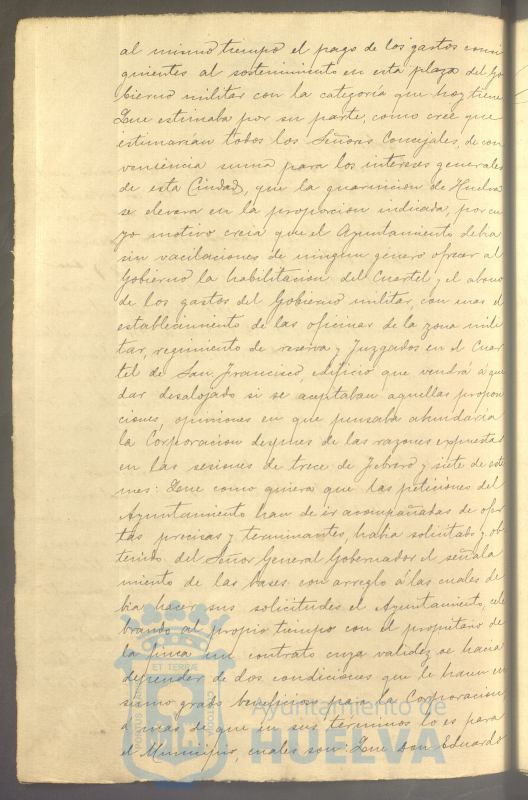 al mismo tiempo el pago de los gastos consi
guientes al sostenimiento en esta plaza del Go
bierno militar con la categoría que hoy tiene
Que estimaba por su parte, como cree que
estimarían todos los Señores Concejales, de con
veniencia suma para los intereses generales
de esta Ciudad, que la guarnicion de Huelva
se elevara en la proporcion indicada, por cu
yo motivo creía que el Ayuntamiento debia
sin vacilaciones de ningun género ofrecer al
Gobierno la habilitacion del Cuartel y el abono
de los gastos del Gobierno militar, con mas el
establecimiento de las oficinas de la zona mili
tar, regimiento de reserva y Juzgados en el Cuar
tel de San Francisco, edificio que vendrá á que
dar desalojado si se aceptaban aquellas proposi
ciones, opiniones en que pensaba abundaría
la Corporacion despues de las razones expuestas
en las sesiones de trece de Febrero y siete de este
mes: Que como quiera que las peticiones del
Ayuntamiento han de ir acompañadas de ofer
tas precisas y terminantes, habia solicitado y ob
tenido del Señor General Gobernador el señala
miento de las bases con arreglo á las cuales de
bia hacer sus solicitudes el Ayuntamiento, cele
brando al propio tiempo con el propietario de
la finca un contrato cuya validez se hacia
depender de dos condiciones que le hacen en
sumo grado beneficioso para la Corporacion
a mas de que en sus términos lo es para
el Municipio, cuales son: Que don Eduardo
ET TERRAE
Ayuntamiento de
HUELVA